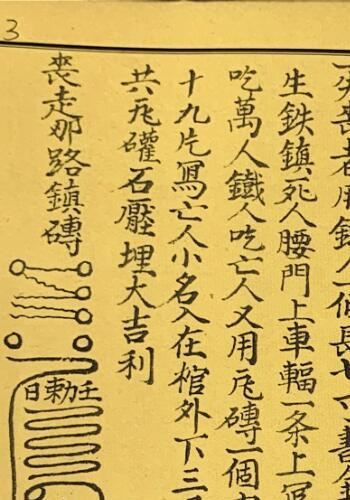 喪者用鉄人一個長七寸書
生鉄鎮死人腰門上車輻一条上寫
吃萬人鐵人吃亡人又用瓦磚一個
十九片寫亡人小名入在棺外下三
共瓦礶石壓埋大吉利
喪走那路鎮磚
壬勅日
3